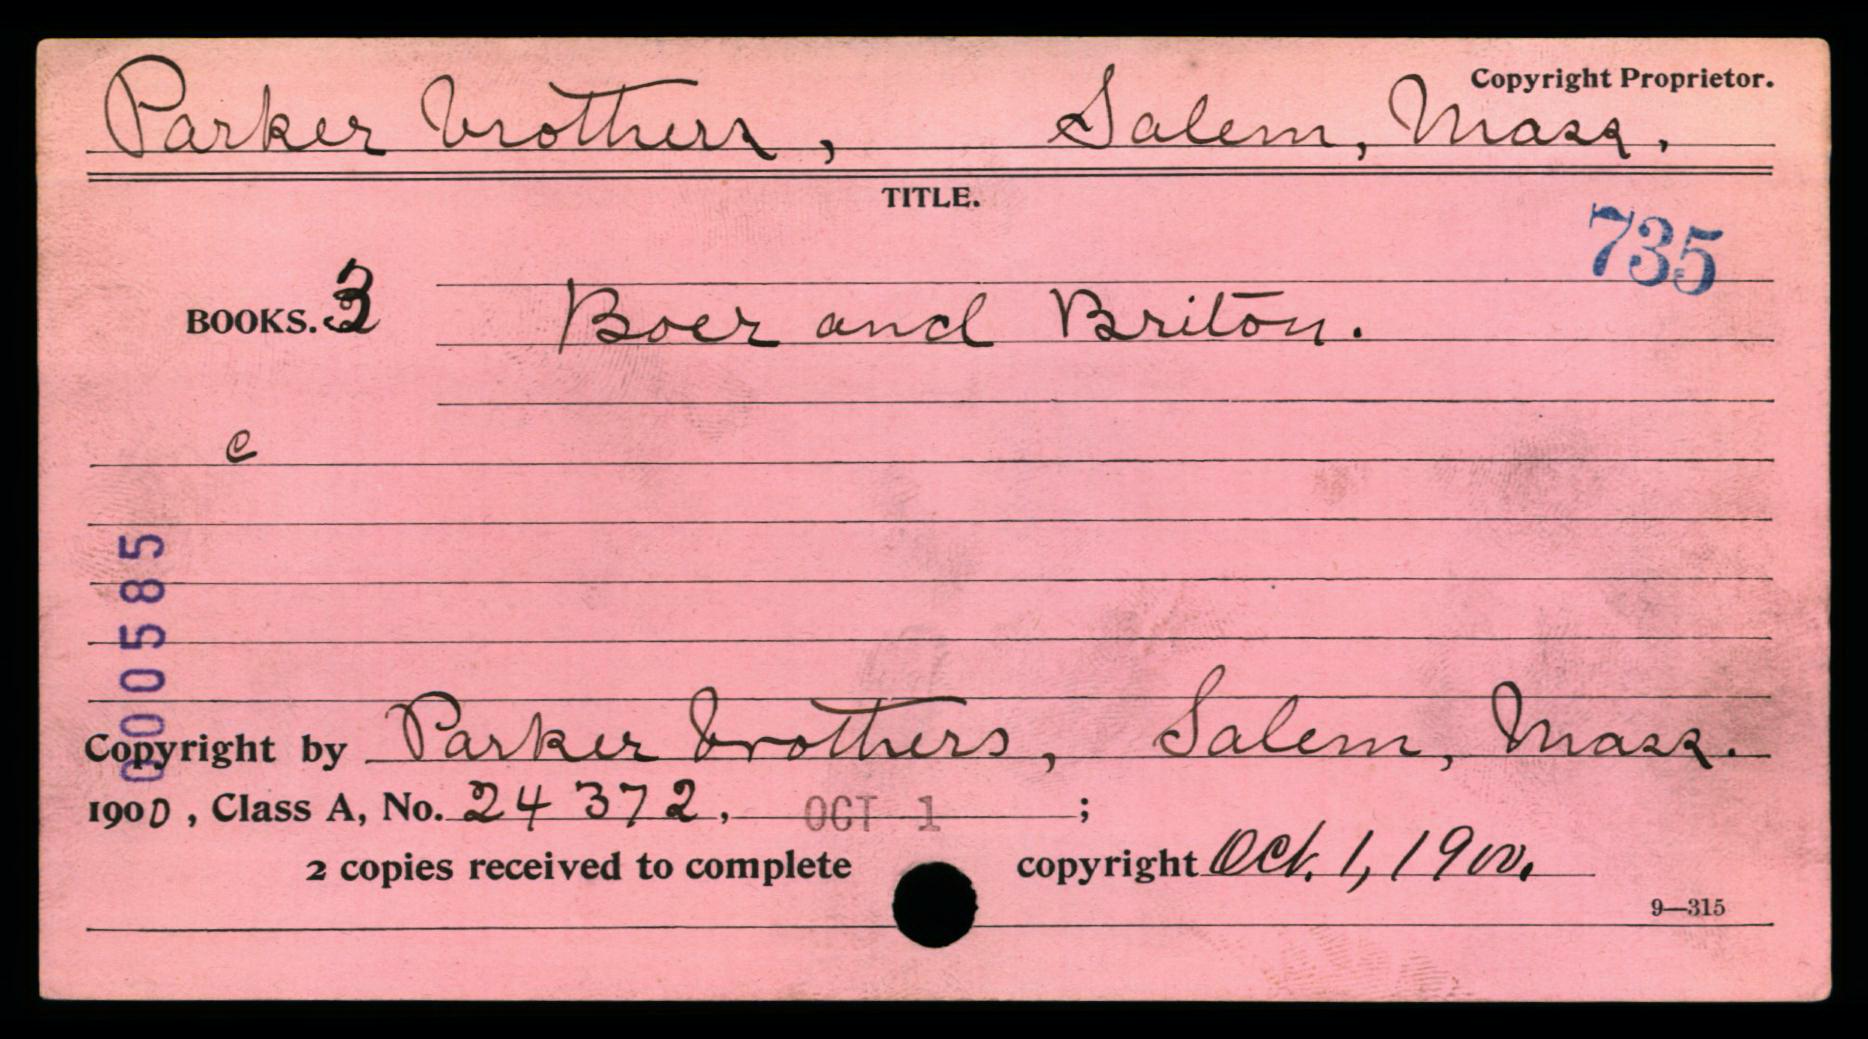 Copyright Proprietor.
Parker brothers, Salem, Mass.
TITLE.
735
BOOKS. 3 Boer and Briton.
c
000585
Copyright by Parker brothers, Salem, Mass.
1900, Class A, No. 24372, OCT 1 ;
2 copies received to complete copyright Oct. 1, 1900.
9—315